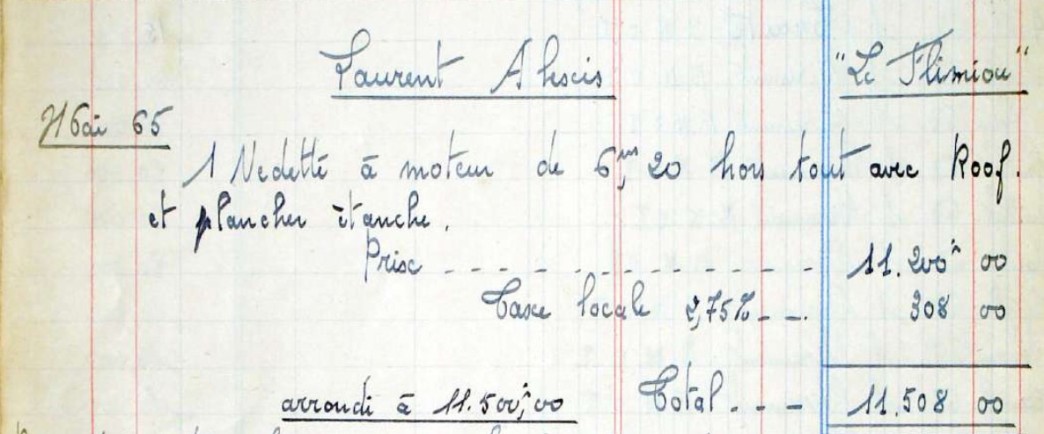 Laurent Alexis "Le Flimiou"
Mai 65
1 Vedette à moteur de 6m,20 hors tout avec Roof.
et plancher étanche.
Prix - - - - - - - - - - - - - 11.200f 00
Taxe locale 2,75% - - . 308 00
arrondi à 11.500f,00 Total - - - 11.508 00